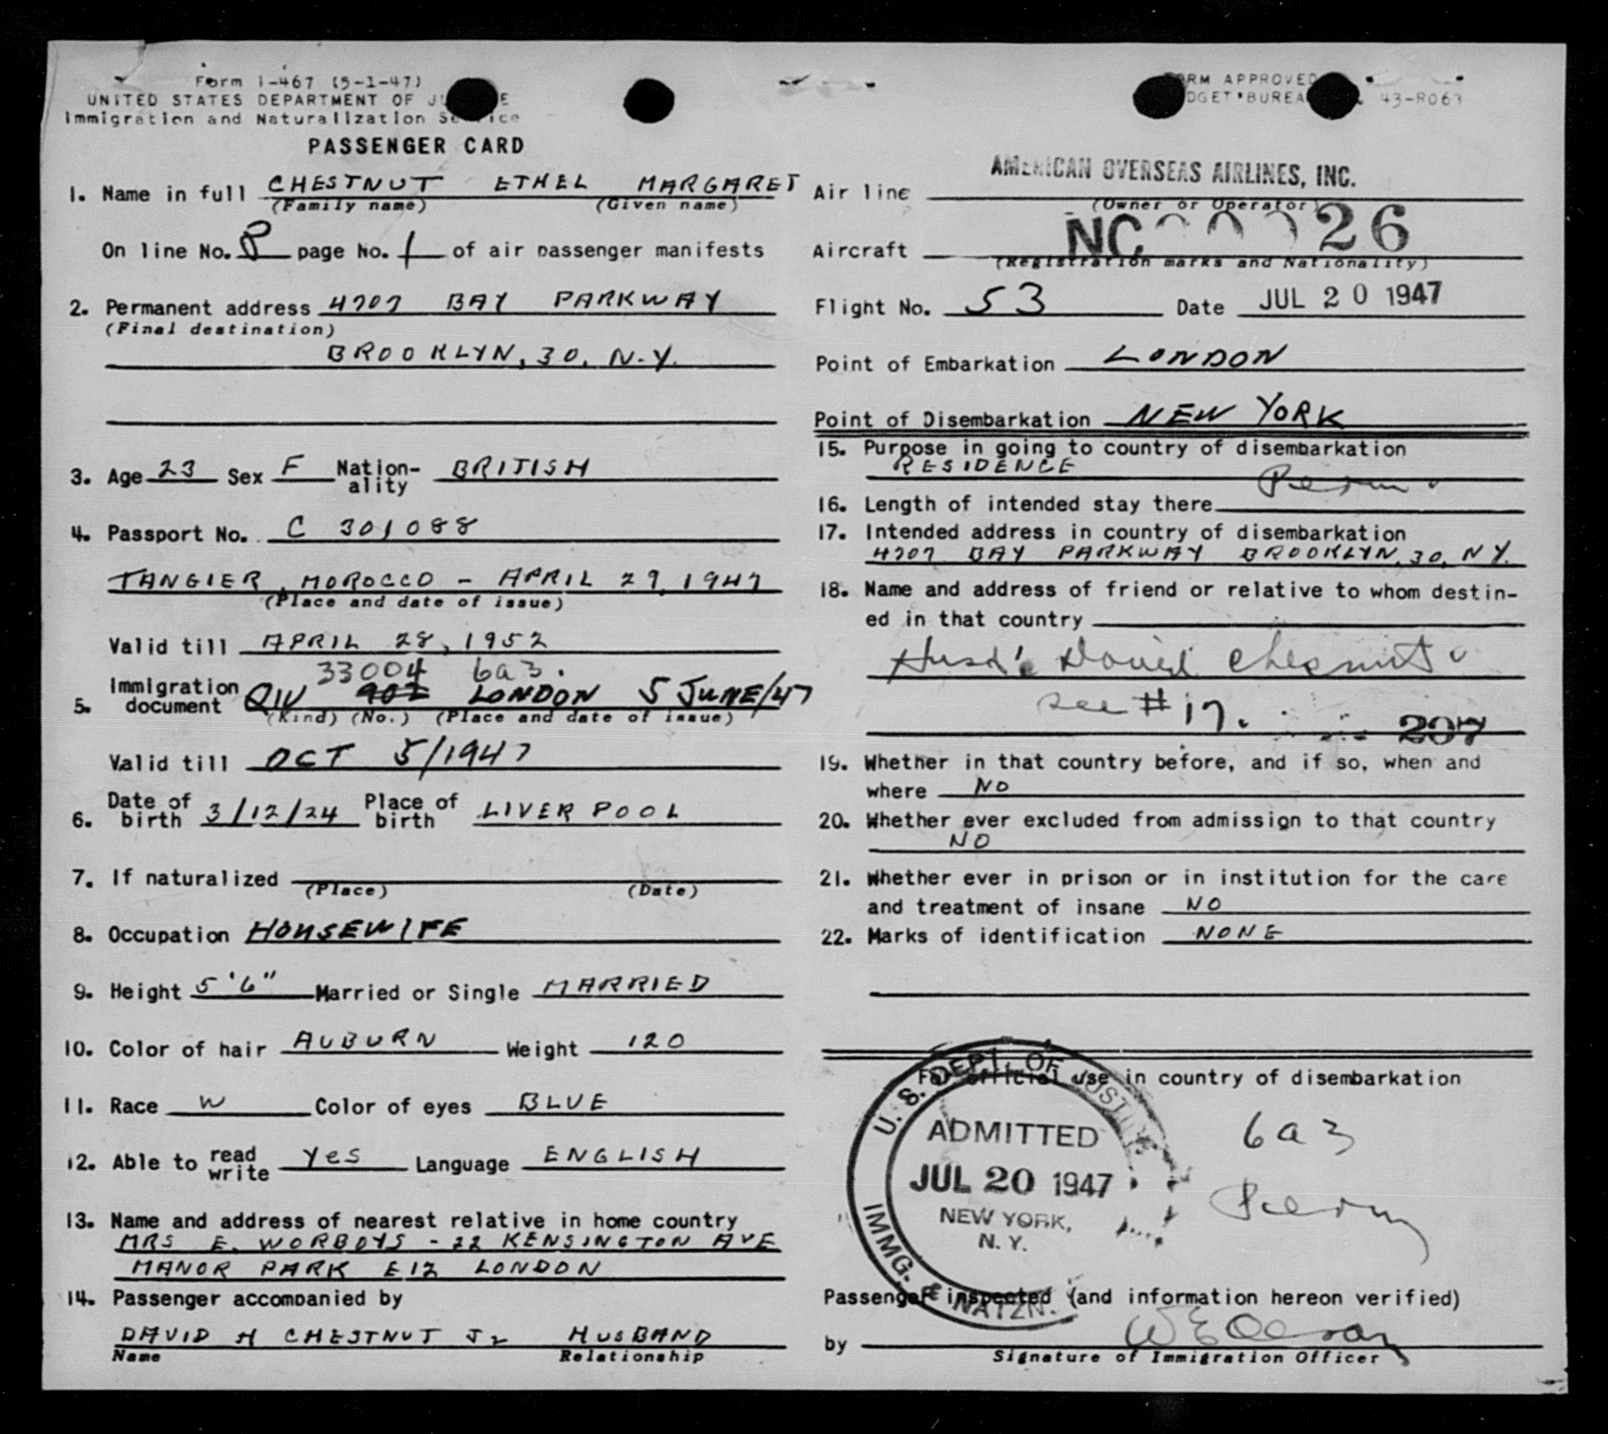 Form I-467 (5-1-47)
UNITED STATES DEPARTMENT OF
Immigration and Naturalization
PASSENGER CARD
1. Name in full CHESTNUT ETHEL MARGARET
(Family name) (Given name)
On line No. 8 page No. 1 of air passenger manifests
2. Permanent address 4707 BAY PARKWAY
(Final destination)
BROOKLYN, 30, N.Y.
3. Age 23 Sex F Nation-ality BRITISH
4. Passport No. C 301088
TANGIER, MOROCCO - APRIL 29, 1947
(Place and date of issue)
Valid till APRIL 28, 1952
33004 6a3.
5. Immigration document QIV 902 LONDON 5 JUNE/47
(Kind) (No.) (Place and date of issue)
Valid till OCT 5/1947
6. Date of birth 3/12/24 Place of birth LIVERPOOL
7. If naturalized
(Place) (Date)
8. Occupation HOUSEWIFE
9. Height 5'6" Married or Single MARRIED
10. Color of hair AUBURN Weight 120
11. Race W Color of eyes BLUE
12. Able to read write Yes Language ENGLISH
13. Name and address of nearest relative in home country
MRS E. WORBOYS - 22 KENSINGTON AVE
MANOR PARK E12 LONDON
14. Passenger accompanied by
DAVID H CHESTNUT Jr HUSBAND
Name Relationship
FORM APPROVED
43-R063
AMERICAN OVERSEAS AIRLINES, INC.
Air line
(Owner or Operator)
Aircraft NC 26
(Registration marks and Nationality)
Flight No. 53 Date JUL 20 1947
Point of Embarkation LONDON
Point of Disembarkation NEW YORK
15. Purpose in going to country of disembarkation
RESIDENCE
16. Length of intended stay there Perm
17. Intended address in country of disembarkation
4707 BAY PARKWAY BROOKLYN, 30, N.Y.
18. Name and address of friend or relative to whom destin-
ed in that country
Husd: David Chesnut
see #17.
207
19. Whether in that country before, and if so, when and
where NO
20. Whether ever excluded from admission to that country
NO
21. Whether ever in prison or in institution for the care
and treatment of insane NO
22. Marks of identification NONE
For official use in country of disembarkation
U. S. DEPT. OF JUSTICE
ADMITTED
JUL 20 1947
NEW YORK,
N. Y.
IMMG. & NATZN.
6a3
Perm
Passenger inspected (and information hereon verified)
by
Signature of Immigration Officer